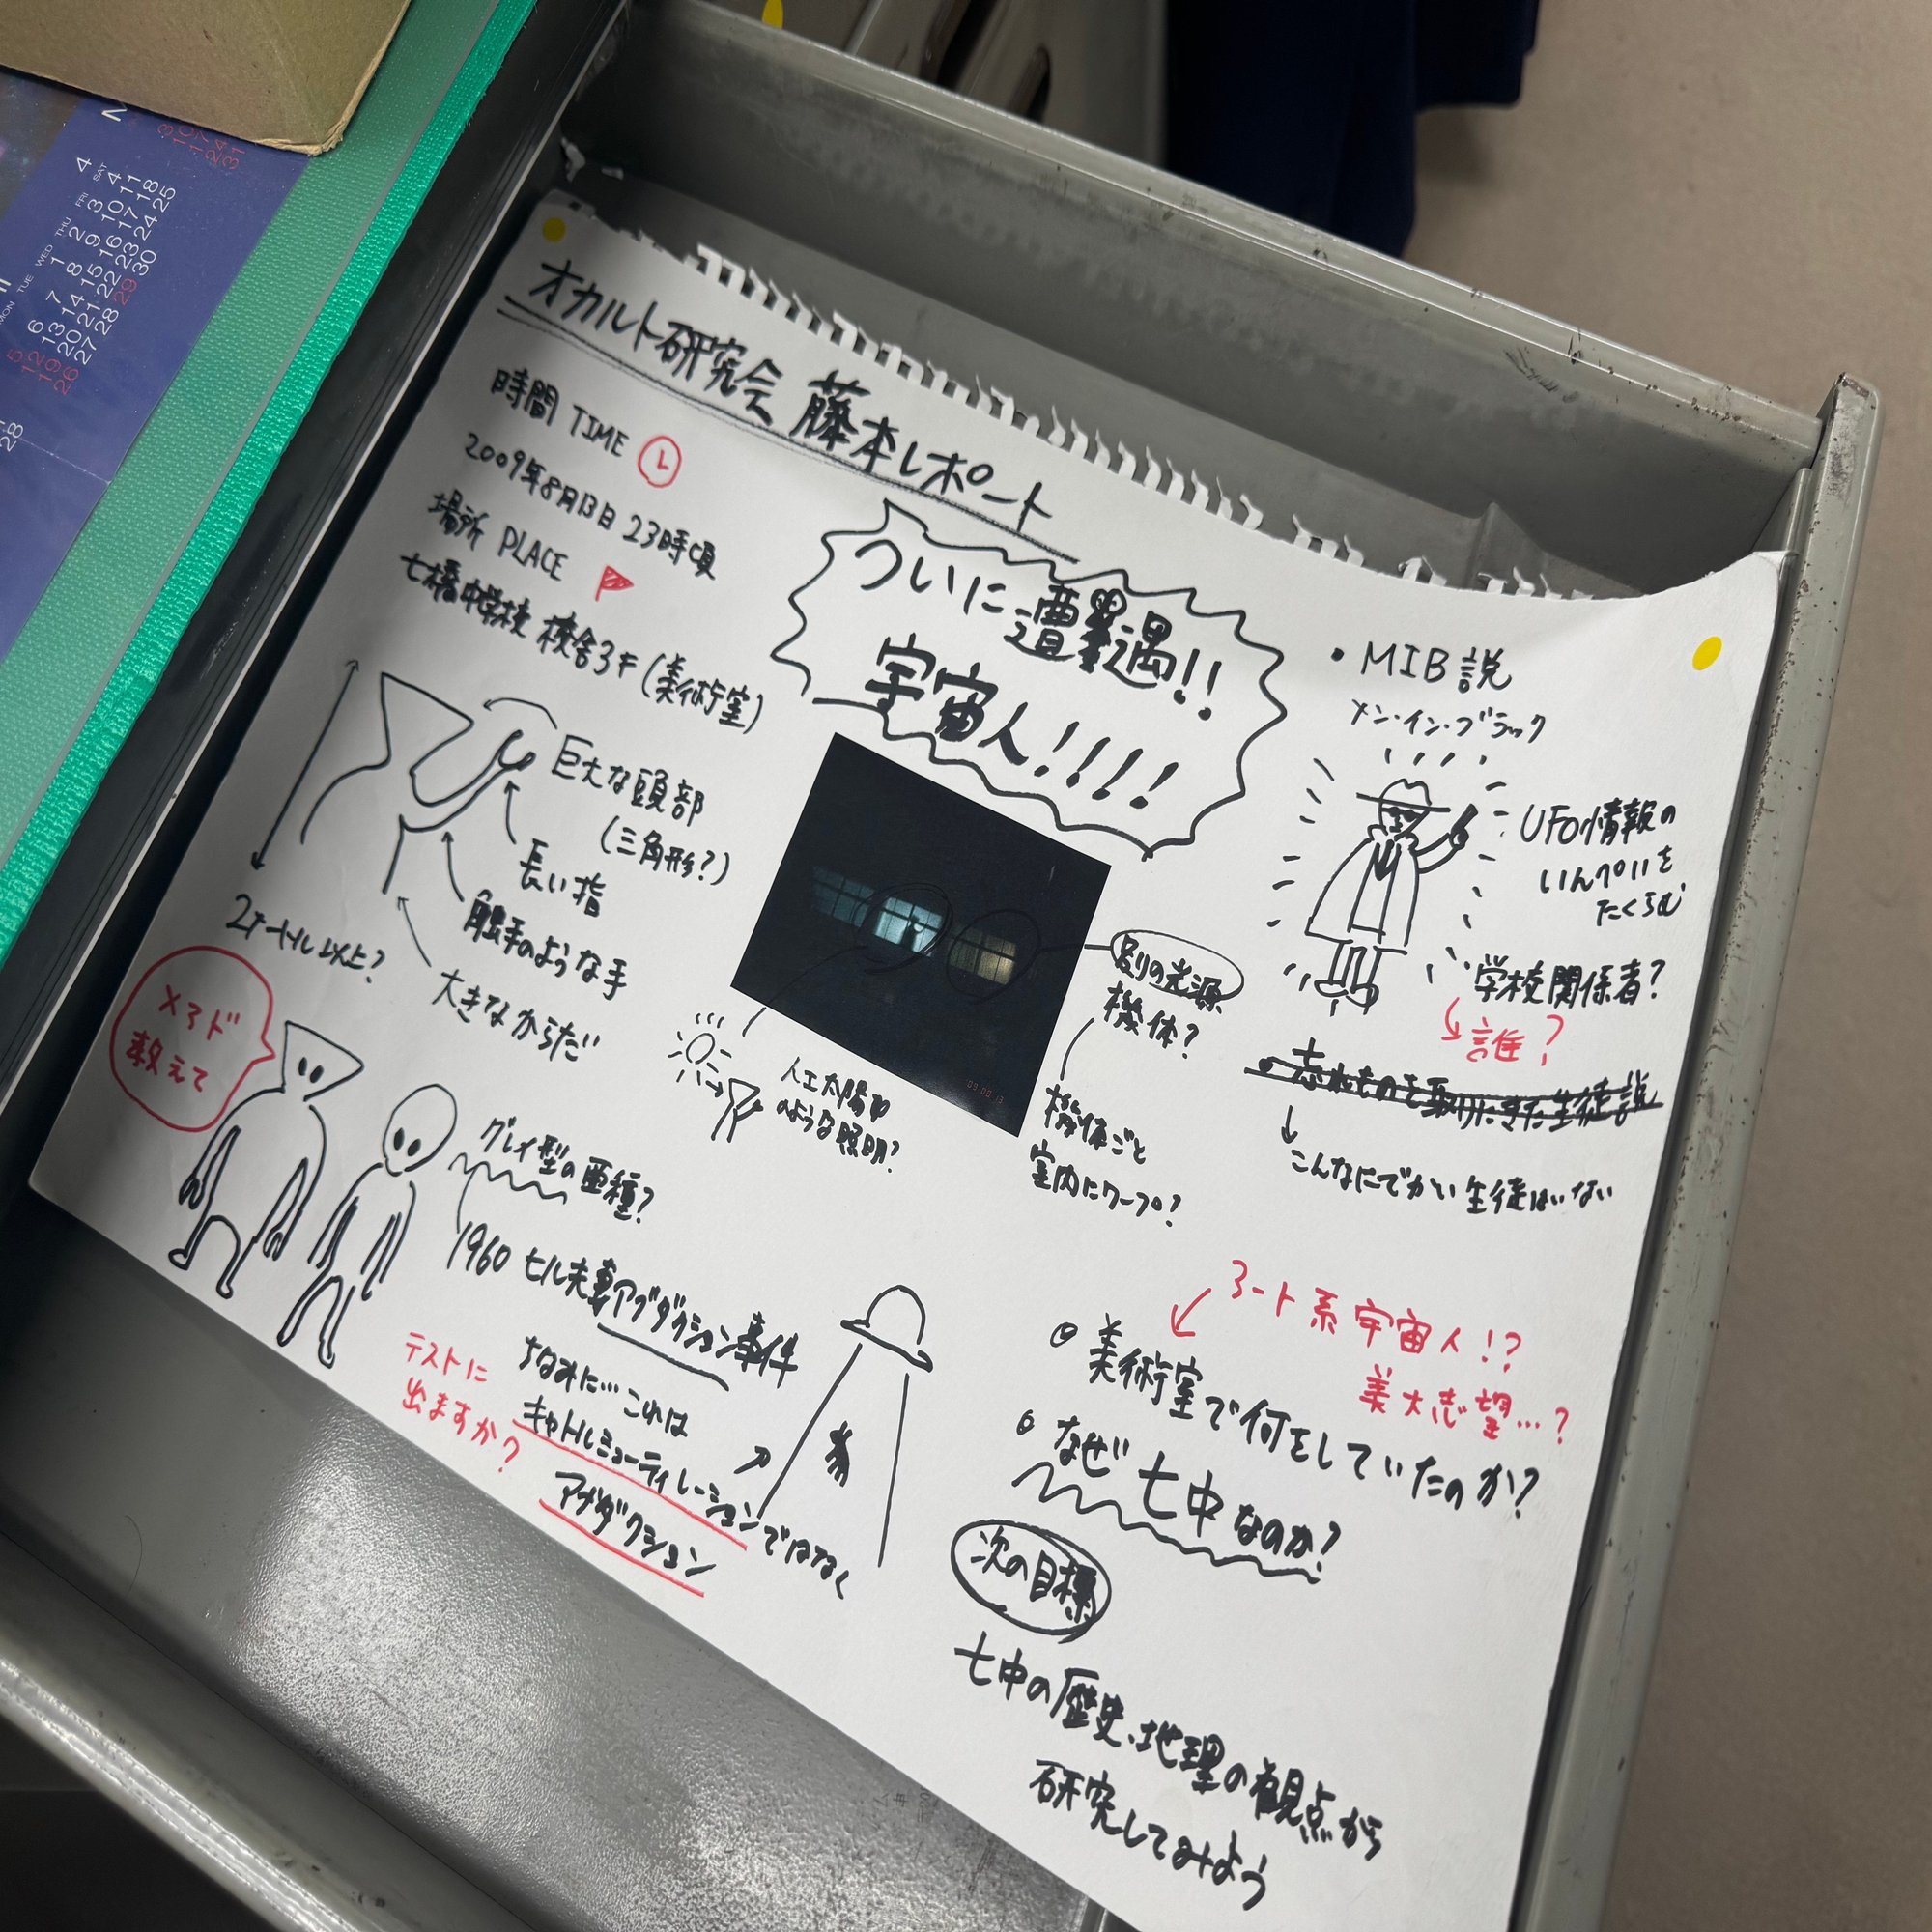 オカルト研究会 藤本レポート
時間 TIME
2009年8月13日 23時頃
場所 PLACE
七橋中学校 校舎3F (美術室)
ついに遭遇!!
宇宙人!!!!
巨大な頭部
(三角形?)
長い指
触手のような手
大きなからだ
2メートル以上?
メアド
教えて
グレイ型の亜種?
1960 ヒル夫妻アブダクション事件
ちなみに…これは
キャトルミューティレーションではなく
アブダクション
テストに
出ますか?
人工太陽
のような照明?
別の光源
機体?
機体ごと
室内にワープ?
'09 08 13
・MIB説
メン・イン・ブラック
UFO情報の
いんぺいを
たくらむ
学校関係者?
誰?
・忘れものを取りにきた生徒説
こんなにでかい生徒はいない
アート系宇宙人!?
美大志望…?
美術室で何をしていたのか?
なぜ七中なのか?
次の目標
七中の歴史、地理の観点から
研究してみよう
MON TUE WED THU FRI SAT
1 2 3 4
5 6 7 8 9 10 11
12 13 14 15 16 17 18
19 20 21 22 23 24 25
26 27 28 29 30
28
10
17
24
31